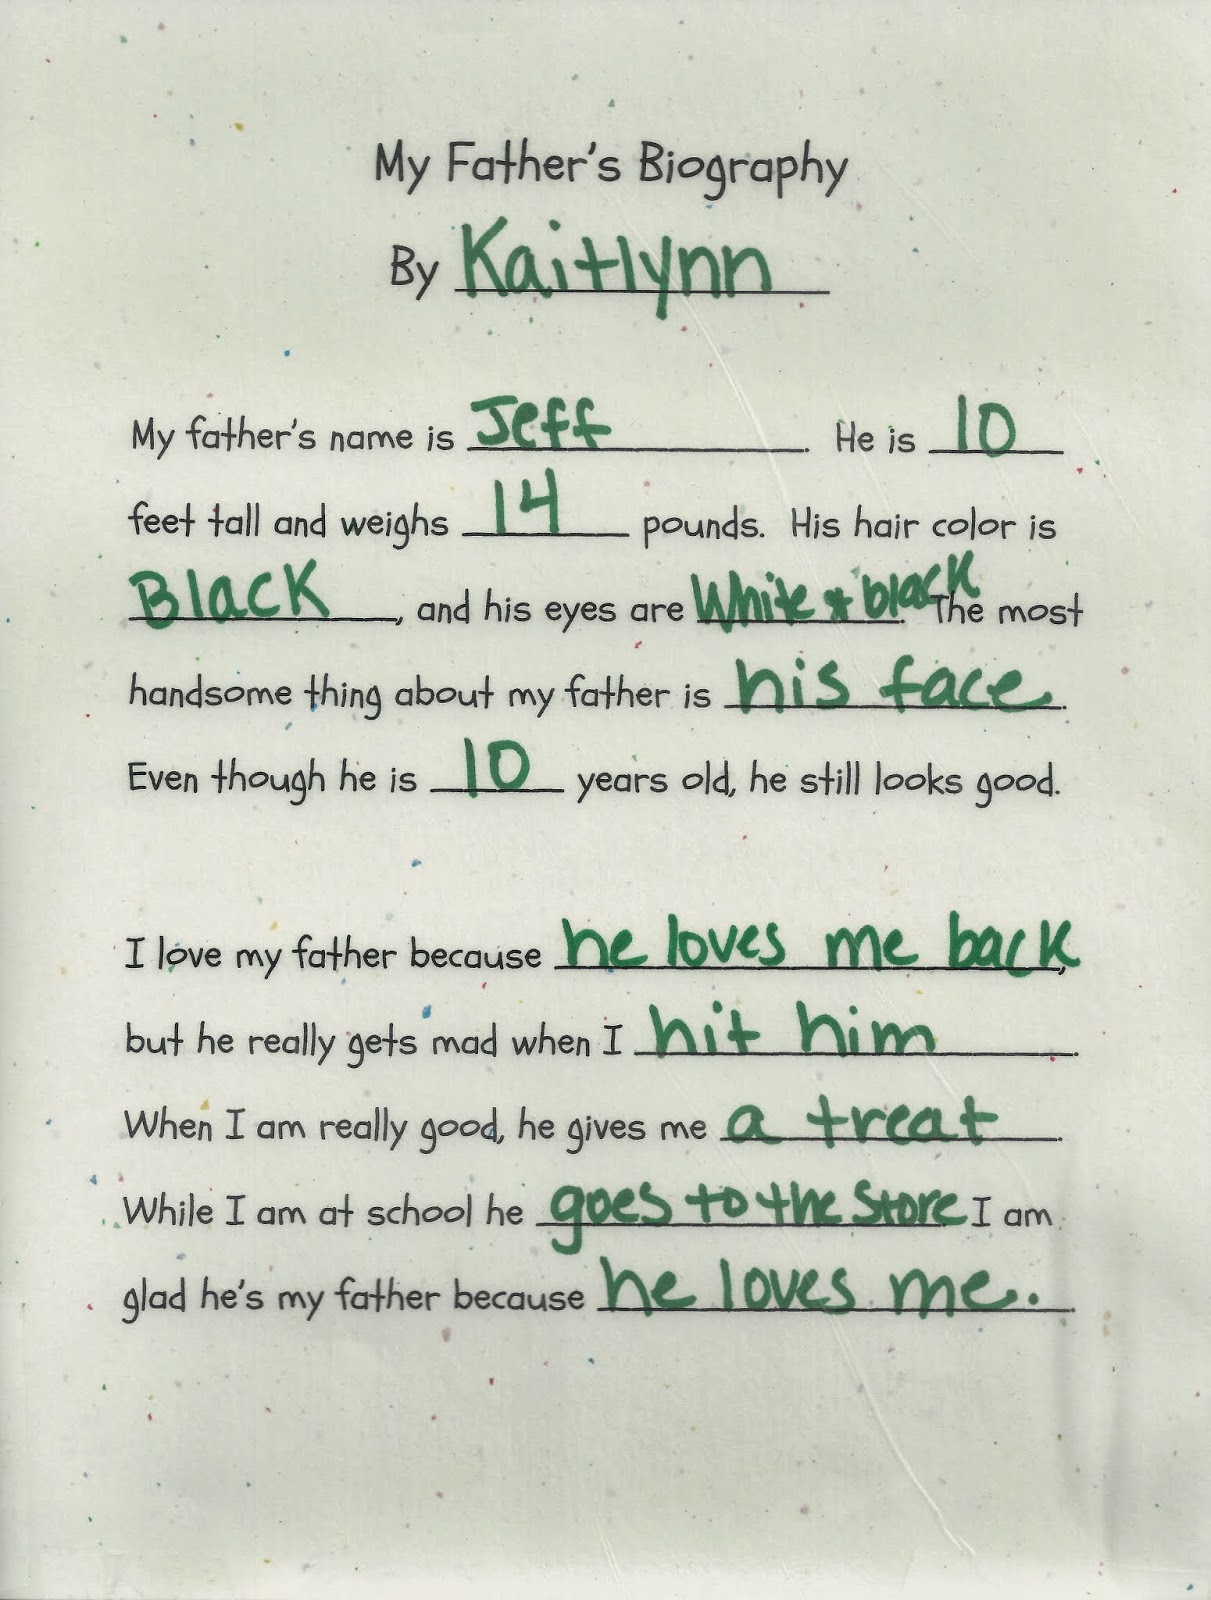 My Father's Biography
By Kaitlynn
My father's name is Jeff. He is 10
feet tall and weighs 14 pounds. His hair color is
Black, and his eyes are White & black. The most
handsome thing about my father is his face.
Even though he is 10 years old, he still looks good.
I love my father because he loves me back,
but he really gets mad when I hit him.
When I am really good, he gives me a treat.
While I am at school he goes to the Store I am
glad he's my father because he loves me.